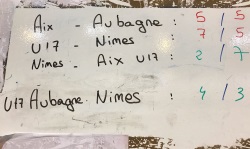 Aix - Aubagne : 5 / 5
U17 - Nimes : 7 / 5
Nimes - Aix U17 : 2 / 7
U17 Aubagne Nimes : 4 / 3